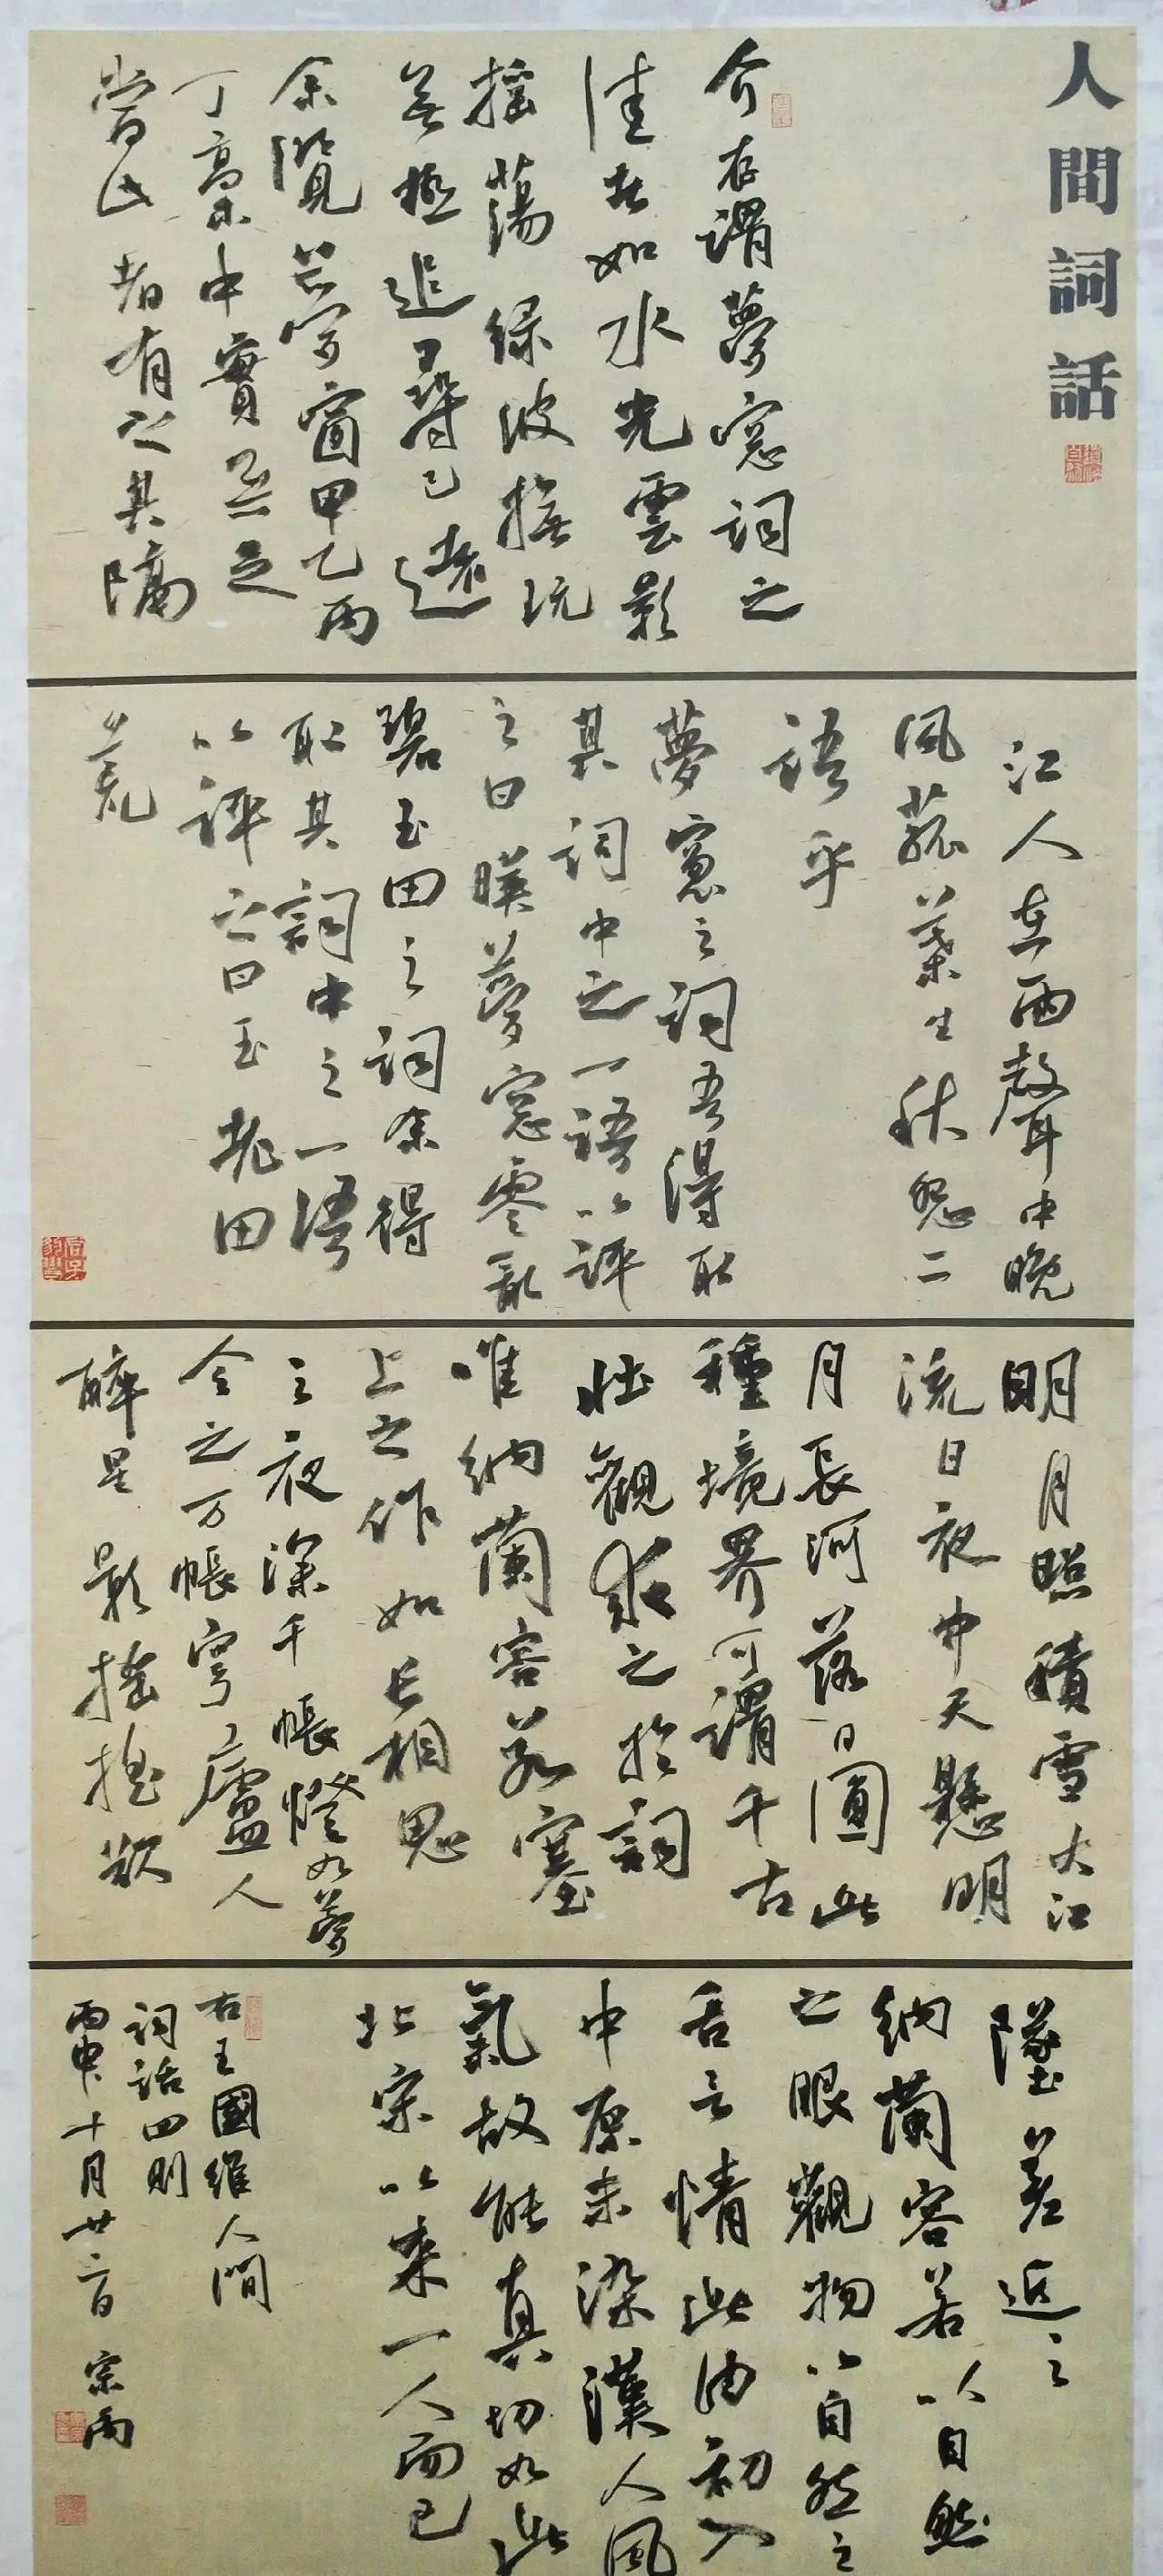 人間詞話
介存謂夢窗詞之
佳者如水光雲影
搖蕩綠波撫玩
無極追尋已遠
余覽夢窗甲乙丙
丁稾中實無足
當此者有之其隔
江人在雨聲中晚
風菰葉生秋怨二
語乎
夢窗之詞吾得取
其詞中之一語以評
之曰映夢窗零亂
碧玉田之詞余得
取其詞中之一語
以評之曰玉老田
荒
明月照積雪大江
流日夜中天懸明
月長河落日圓此
種境界可謂千古
壯觀求之於詞
唯納蘭容若塞
上之作如長相思
之夜深千帳燈如夢
令之万帳穹廬人
醉星影搖搖欲
墜差近之
納蘭容若以自然
之眼觀物以自然之
舌言情此由初入
中原未染漢人風
氣故能真切如此
北宋以來一人而已
右王國維人間
詞話四則
丙申十月廿二日 宗雨